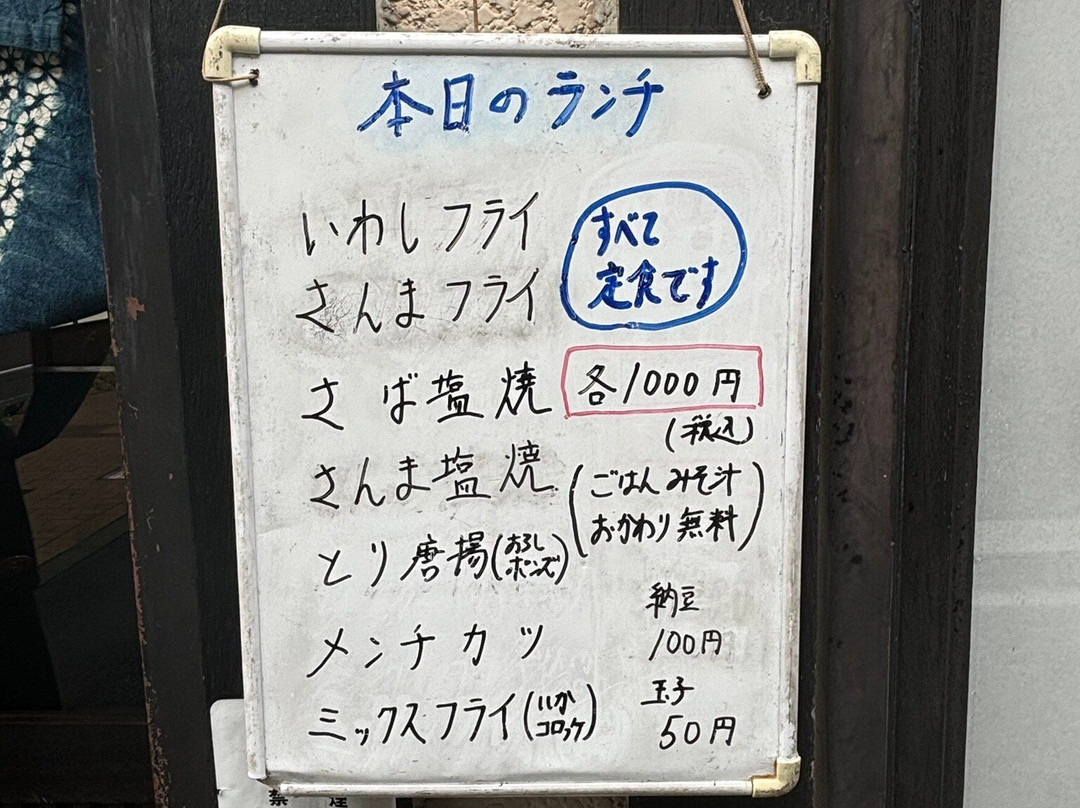 本日のランチ
いわしフライ
さんまフライ
すべて
定食です
さば塩焼
各1000円
(税込)
さんま塩焼
(ごはんみそ汁
おかわり無料)
とり唐揚(おろし
ポンズ)
メンチカツ
ミックスフライ(いか
コロッケ)
納豆
100円
玉子
50円
禁煙